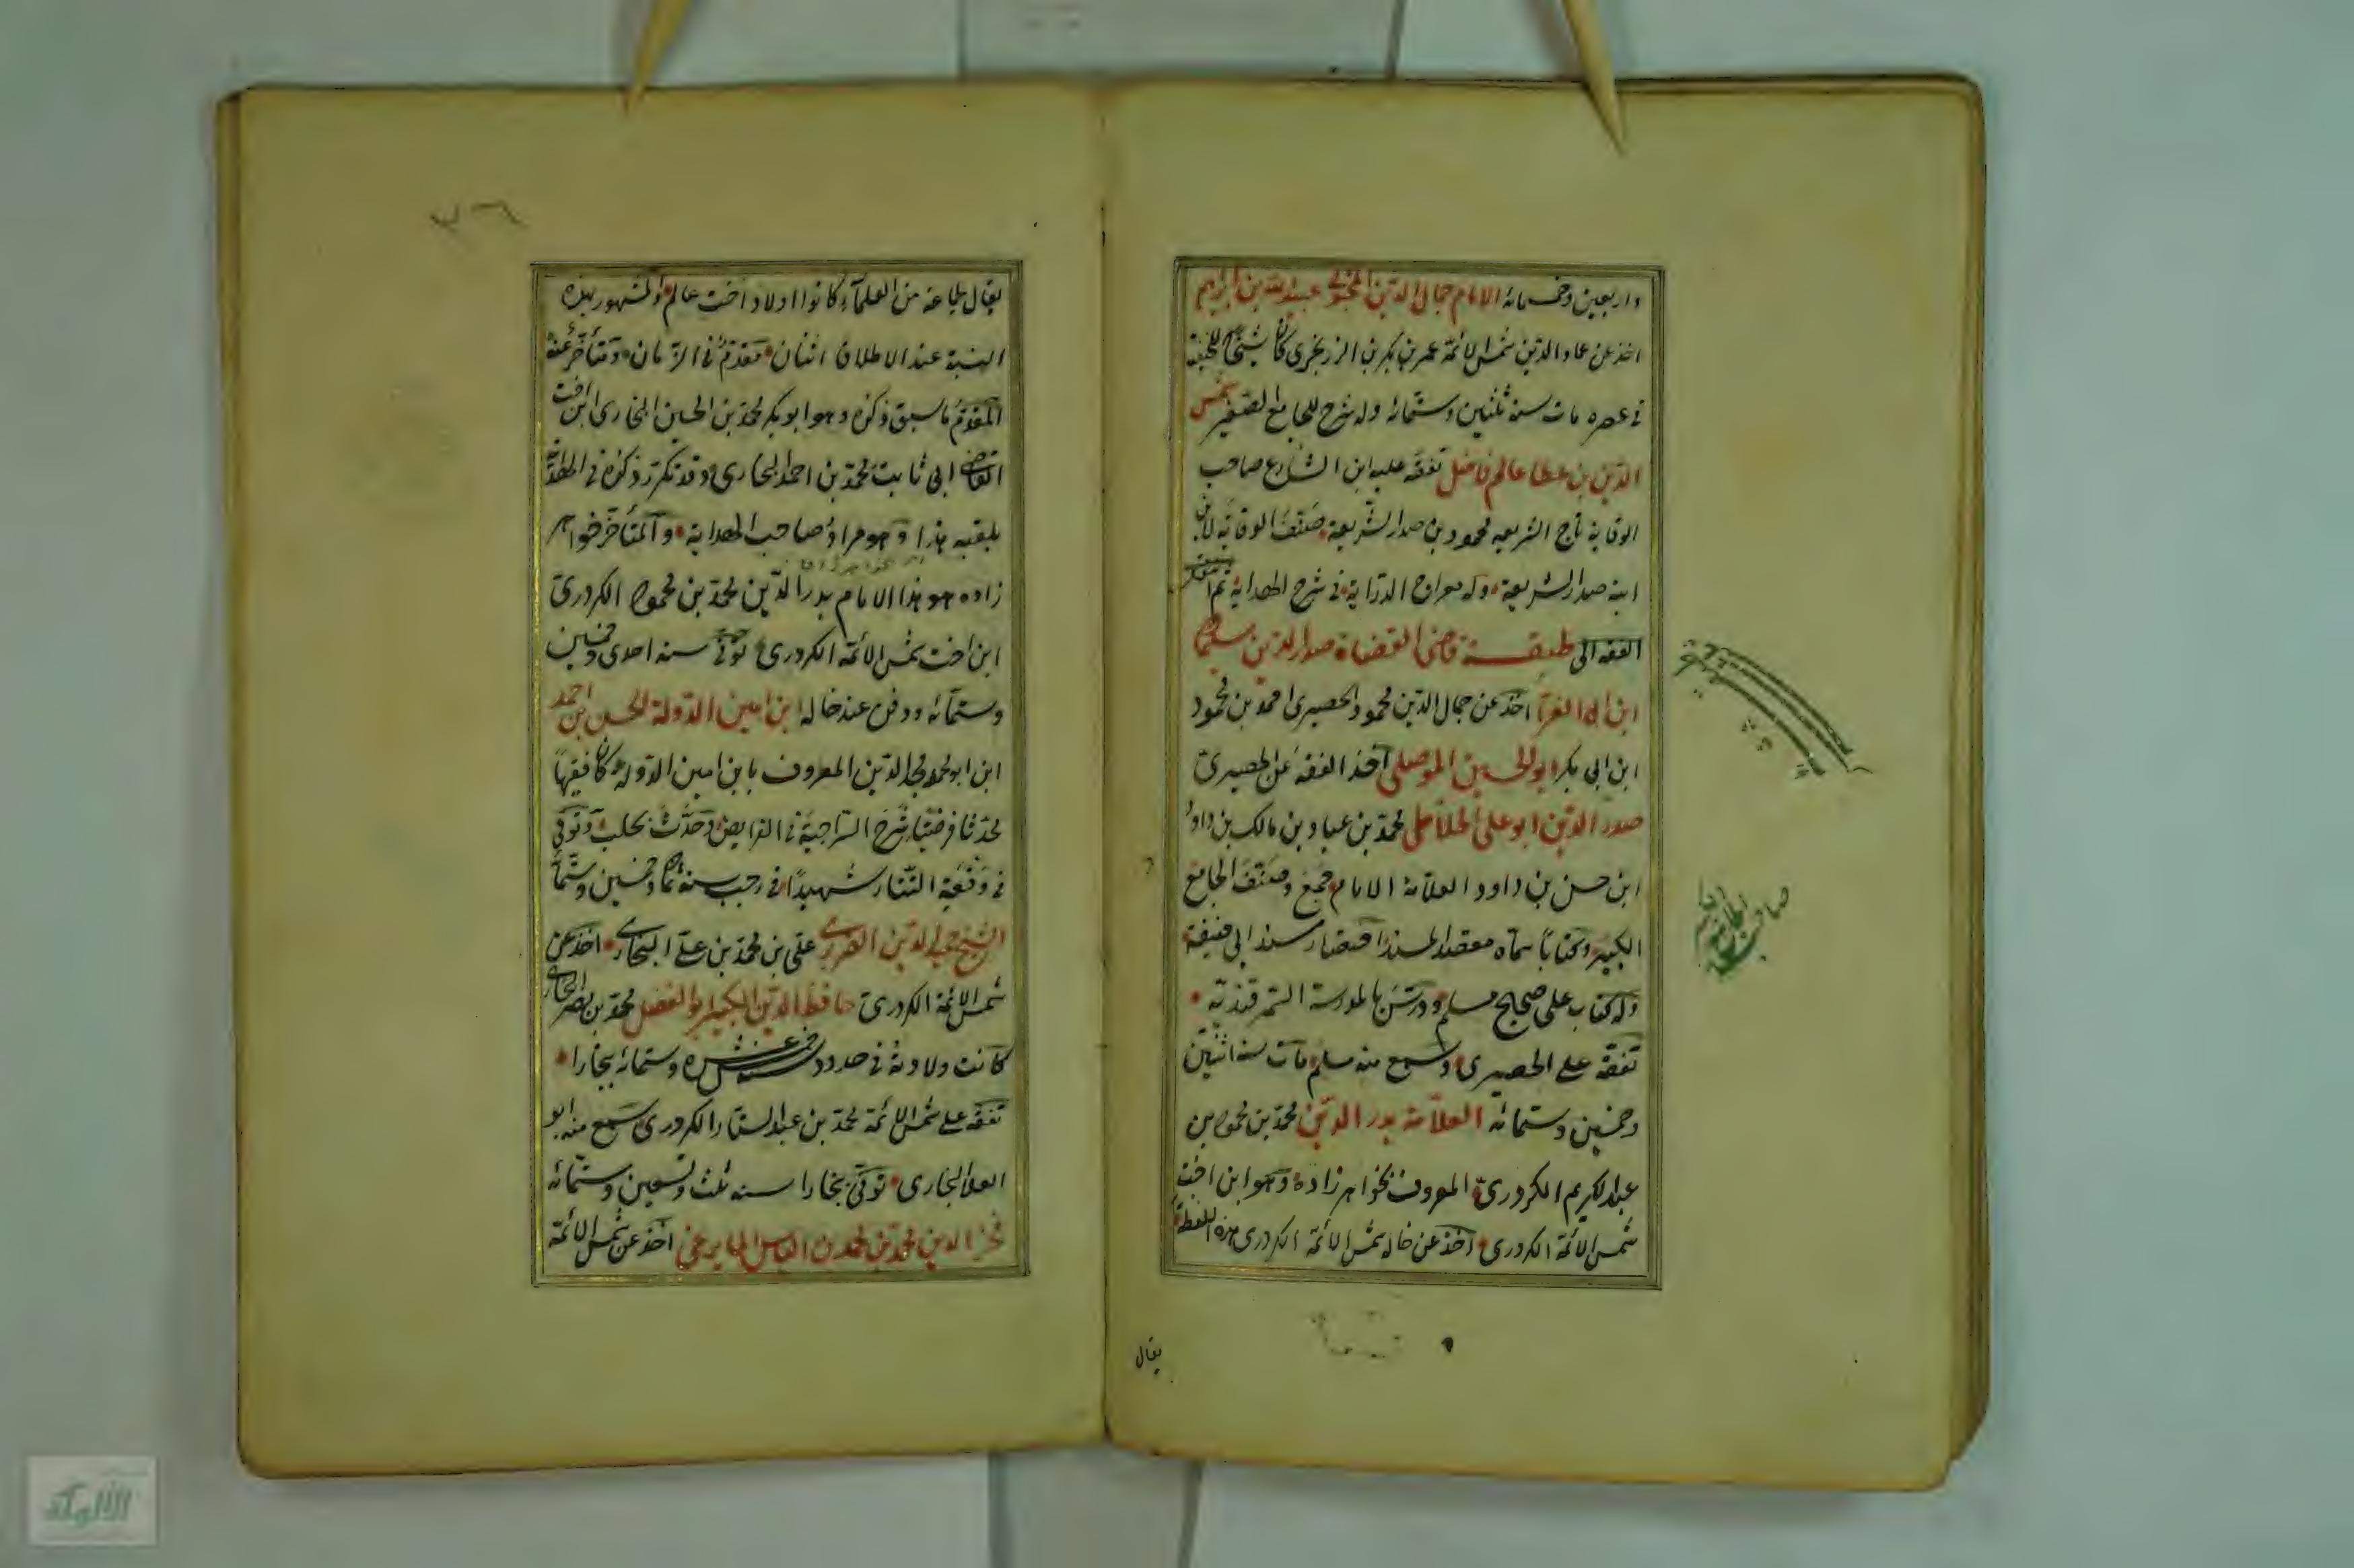 واربعين وخمسمائة الامام جمال الدين المحبوبي عبيدالله بن ابراهيم
اخذ عن عماد الدين شمس الائمة عمر بن بكر بن الزرنجرى كان شيخا للحنفية
فى عصره مات سنة ثلثين وستمائة وله شرح للجامع الصغير شمس
الدين بن عطا عالم فاضل تفقه عليه ابن الشارع صاحب
الوقاية تاج الشريعه محمود بن صدر الشريعة صنف الوقاية لابن
ابنه صدر الشريعة وله معراج الدراية فى شرح الهداية ثم انتقل
الفقه الى طبقة قاضى القضاة صدر الدين سليمان
ابن ابى العز اخذ عن جمال الدين محمود الحصيرى احمد بن محمود
ابن ابى بكر ابو الحسين الموصلى اخذ الفقه عن الحصيرى
صدر الدين ابو على الخلاطى محمد بن عباد بن مالك بن داود
ابن حسن بن داود العلامة الامام جمع وصنف الجامع
الكبير وكتابا سماه مقصد المسند اختصار مسند ابى حنيفة
وله كتاب على صحيح مسلم ودرس بالمدرسة السمرقندية
تفقه على الحصيرى وسمع منه مسلم مات سنة اثنتين
وخمسين وستمائة العلامة بدر الدين محمد بن محمود بن
عبد الكريم الكردرى المعروف بخواهر زاده وهو ابن اخت
شمس الائمة الكردرى اخذ عن خاله شمس الائمة الكردرى هذه اللفظة
صاحب
يقال
٣٦
يقال لجماعة من العلماء كانوا اولاد اخت عالم والمشهور بهذه
النسبة عند الاطلاق اثنان متقدم فى الزمان ومتأخر عنه
المتقدم ما سبق ذكره وهو ابو بكر محمد بن الحسين البخارى ابن اخت
القاضى ابى ثابت محمد بن احمد البخارى وقد تكرر ذكره فى الهداية
بلقبه هذا وهو مراد صاحب الهداية والمتأخر خواهر
زاده هو هذا الامام بدر الدين محمد بن محمود الكردرى
ابن اخت شمس الائمة الكردرى توفى سنة احدى وخمسين
وستمائة ودفن عند خاله ابن امين الدولة الحسن بن احمد
ابن ابو محمد مجد الدين المعروف بابن امين الدولة كان فقيها
محدثا فرضيا شرح السراجية فى الفرايض وحدث بحلب وتوفى
فى وقعة التتار شهيدا فى رجب سنة ثمان وخمسين وستمائة
الشيخ حميد الدين الضرير على بن محمد بن على البخارى اخذ عن
شمس الائمة الكردرى حافظ الدين الكبير ابو الفضل محمد بن نصر البخارى
كانت ولادته فى حدود سنة خمس عشرة وستمائة ببخارا
تفقه على شمس الائمة محمد بن عبد الستار الكردرى سمع منه ابو
العلا البخارى توفى ببخارا سنة ثلث وتسعين وستمائة
فخر الدين محمد بن محمد بن الياس المايمرغى اخذ عن شمس الائمة
الألوكة